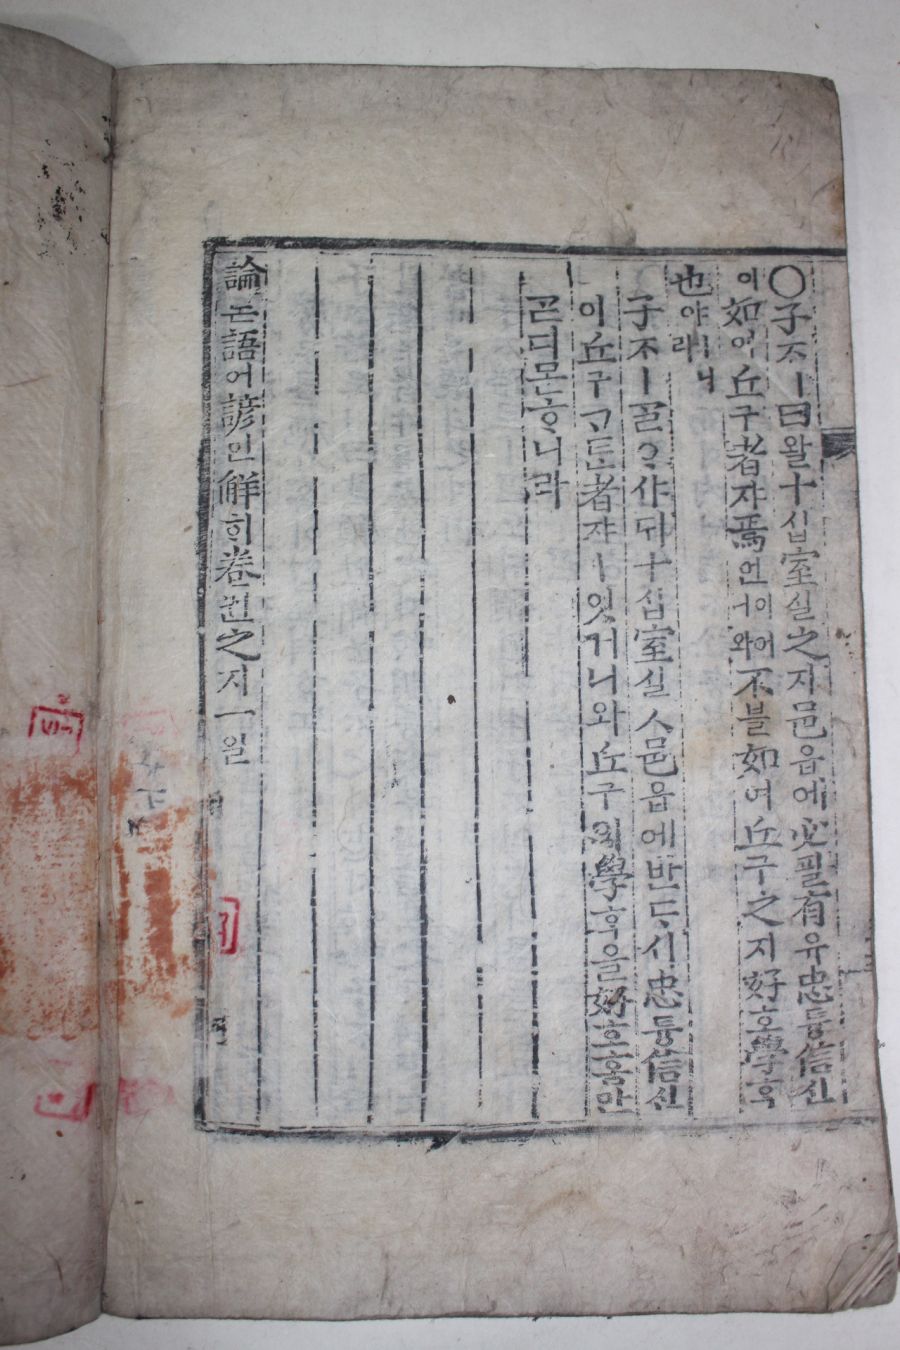 ○子ᄌᆞㅣ曰왈十십室실之지邑읍에必필有유忠듕信신
이如여丘구者쟈焉언이어니와不블如여丘구之지好호學ᄒᆞᆨ
也야ㅣ니라
子ᄌᆞㅣᄀᆞᆯᄋᆞ샤ᄃᆡ十십室실ㅅ邑읍에반ᄃᆞ시忠듕信신
이丘구ᄀᆞᄐᆞᆫ者쟈ㅣ잇거니와丘구의學ᄒᆞᆨ을好호홈만
ᄀᆞᆮ디몯ᄒᆞ니라
論논語어諺언解ᄒᆡ卷권之지一일